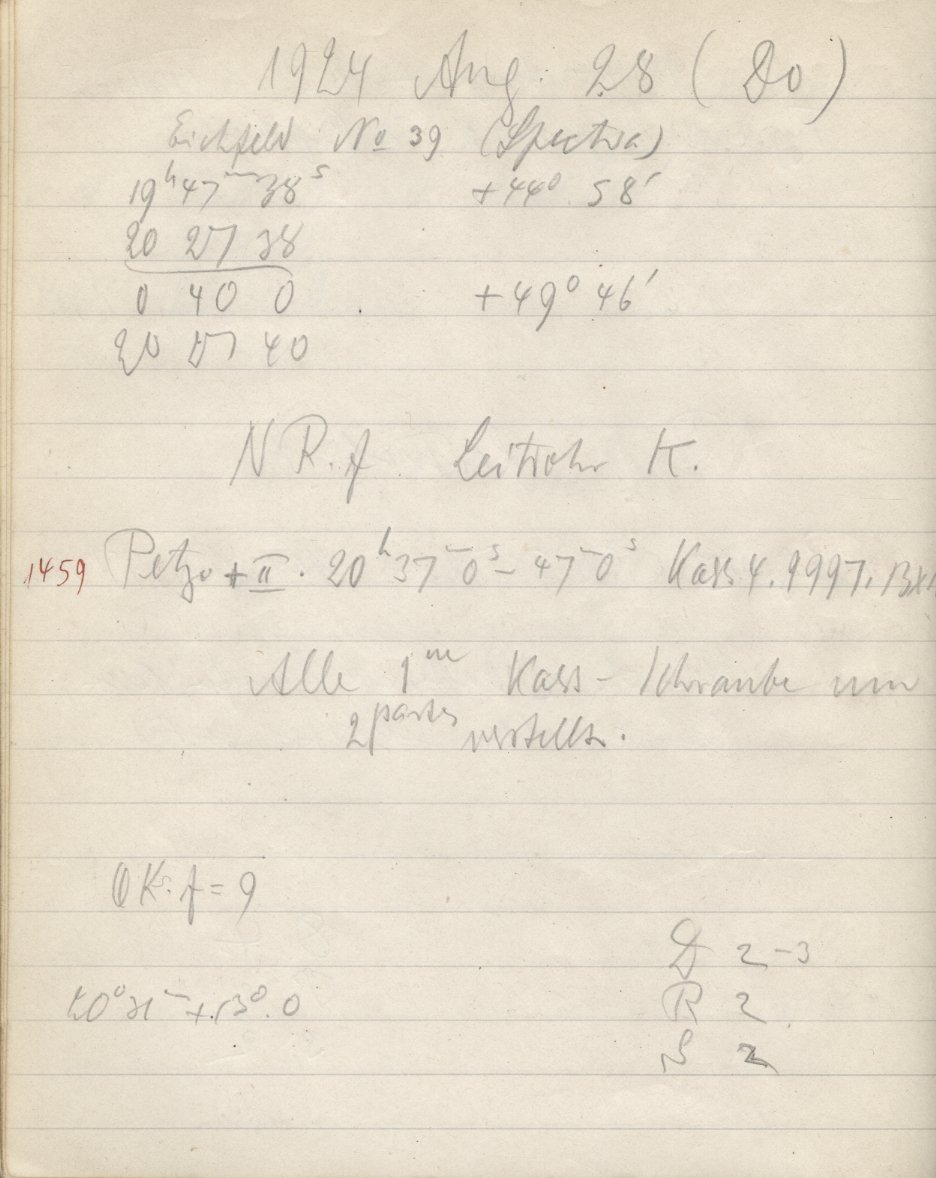 1924 Aug. 28 (Do)
Eichfeld No 39 (Spectra)
19h 47m 38s +44° 58'
20 27 38
0 40 0 +49° 46'
20 27 40
N R. f. Leitrohr K.
1459 Petz. + II. 20h 37m 0s – 47m 0s Kass 4. 9997.
Alle 1m Kass-Schraube um
2 partes verstellt.
OK. f = 9
D 2-3
20° 31m + 13°.0
R 2
S 2